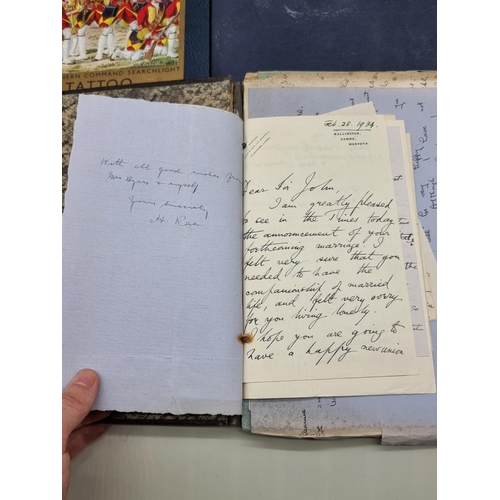 ERN COMMAND SEARCHLIGHT
TATTOO
With all good wishes from
Mrs Byers & myself
Yours sincerely
H. Rae
Feb. 28. 1934.
WALLINGTON,
CAMBO,
MORPETH
Dear Sir John,
I am greatly pleased
to see in the Times today
the announcement of your
forthcoming marriage. I
felt very sure that you
needed to have the
companionship of married
life, and felt very sorry
for you living lonely.
I hope you are going to
have a happy new union